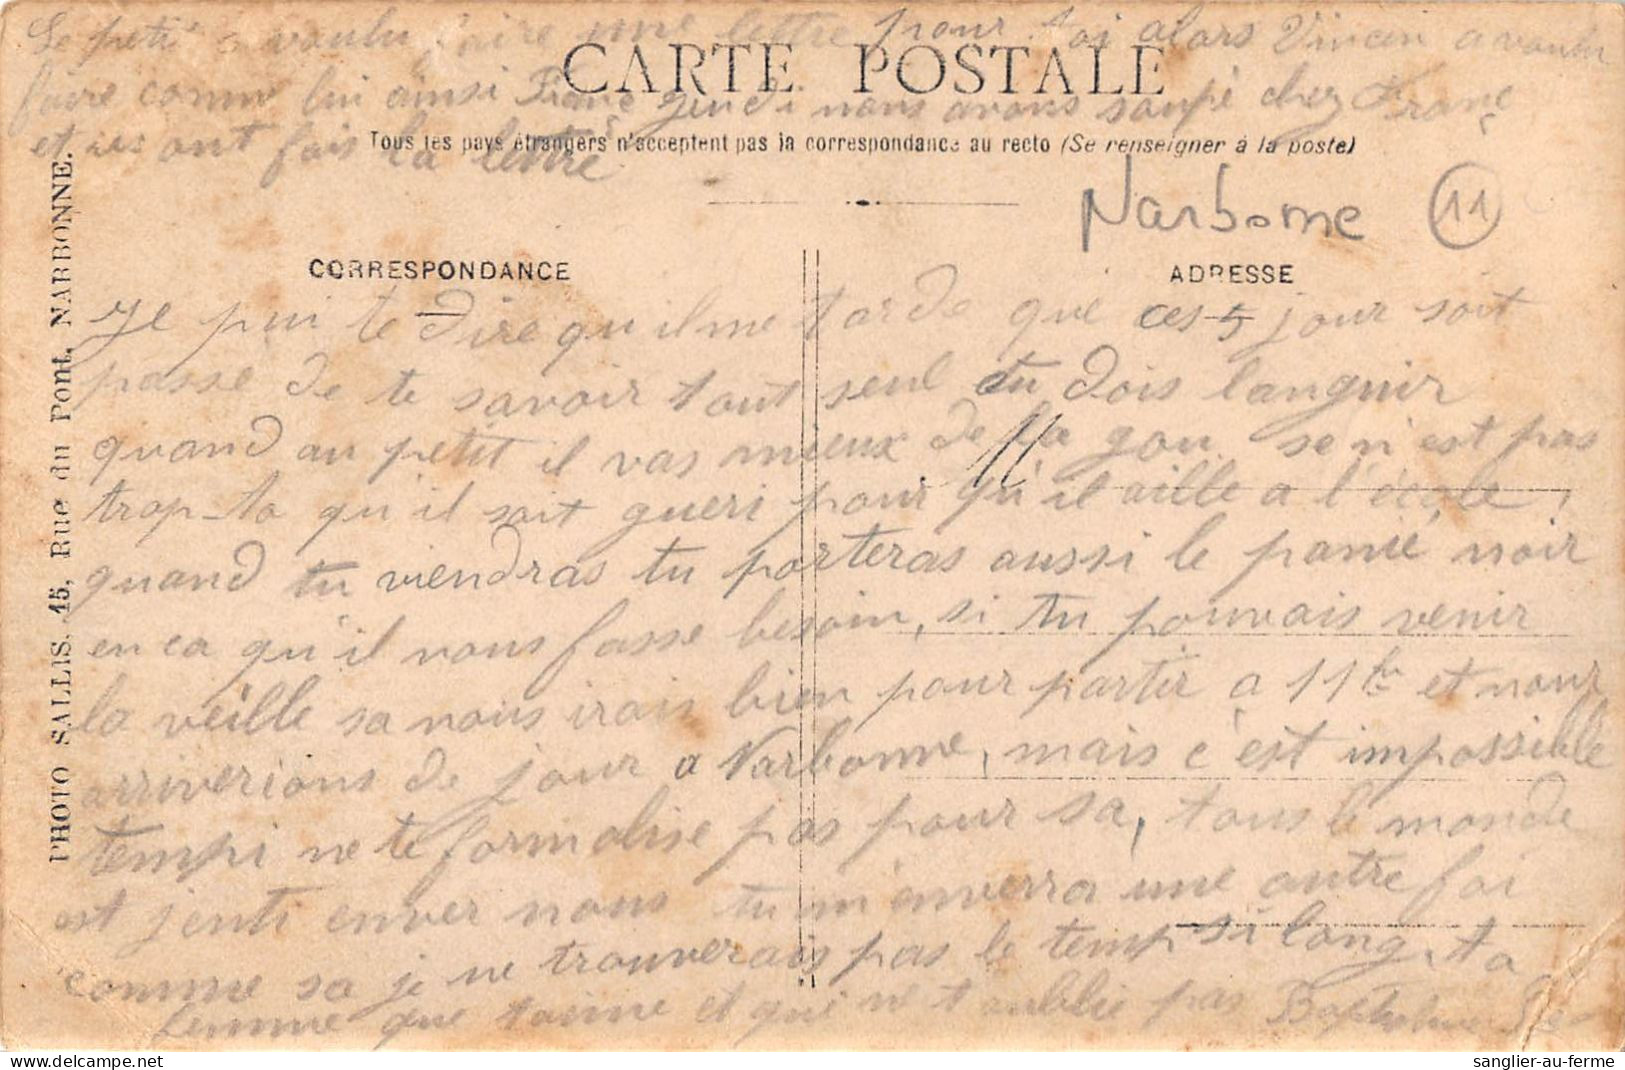 Le petit a voulu faire une lettre pour toi alors Vincen a voulu
faire comme lui ainsi Franç Jeudi nous avons soupé chez Franç
et ont fais la lettre
CARTE POSTALE
Tous les pays étrangers n'acceptent pas la correspondance au recto (Se renseigner à la poste)
Narbonne 11
CORRESPONDANCE
ADRESSE
PHOTO SALLIS, 15, Rue du Pont, NARBONNE.
Je pui te dire qu il me tarde que ces 5 jour soit
passe de te savoir tout seul tu dois languir
quand au petit il vas mieux de la gou se n est pas
trop to qu'il soit gueri pour qu'il aille a l'école,
quand tu viendras tu porteras aussi le panié noir
en ca qu'il nous fasse besoin, si tu pouvais venir
la veille sa nous irais bien pour partir a 11h et nous
arriverions de jour a Narbonne, mais c'est impossible
tempi ne te formalise pas pour sa, tous le monde
est jenti enver nous tu m'enverra une autre foi
11
comme sa je ne trouverais pas le temp si long, ta
femme que taime et qui ne t oublie pas
sanglier-au-ferme